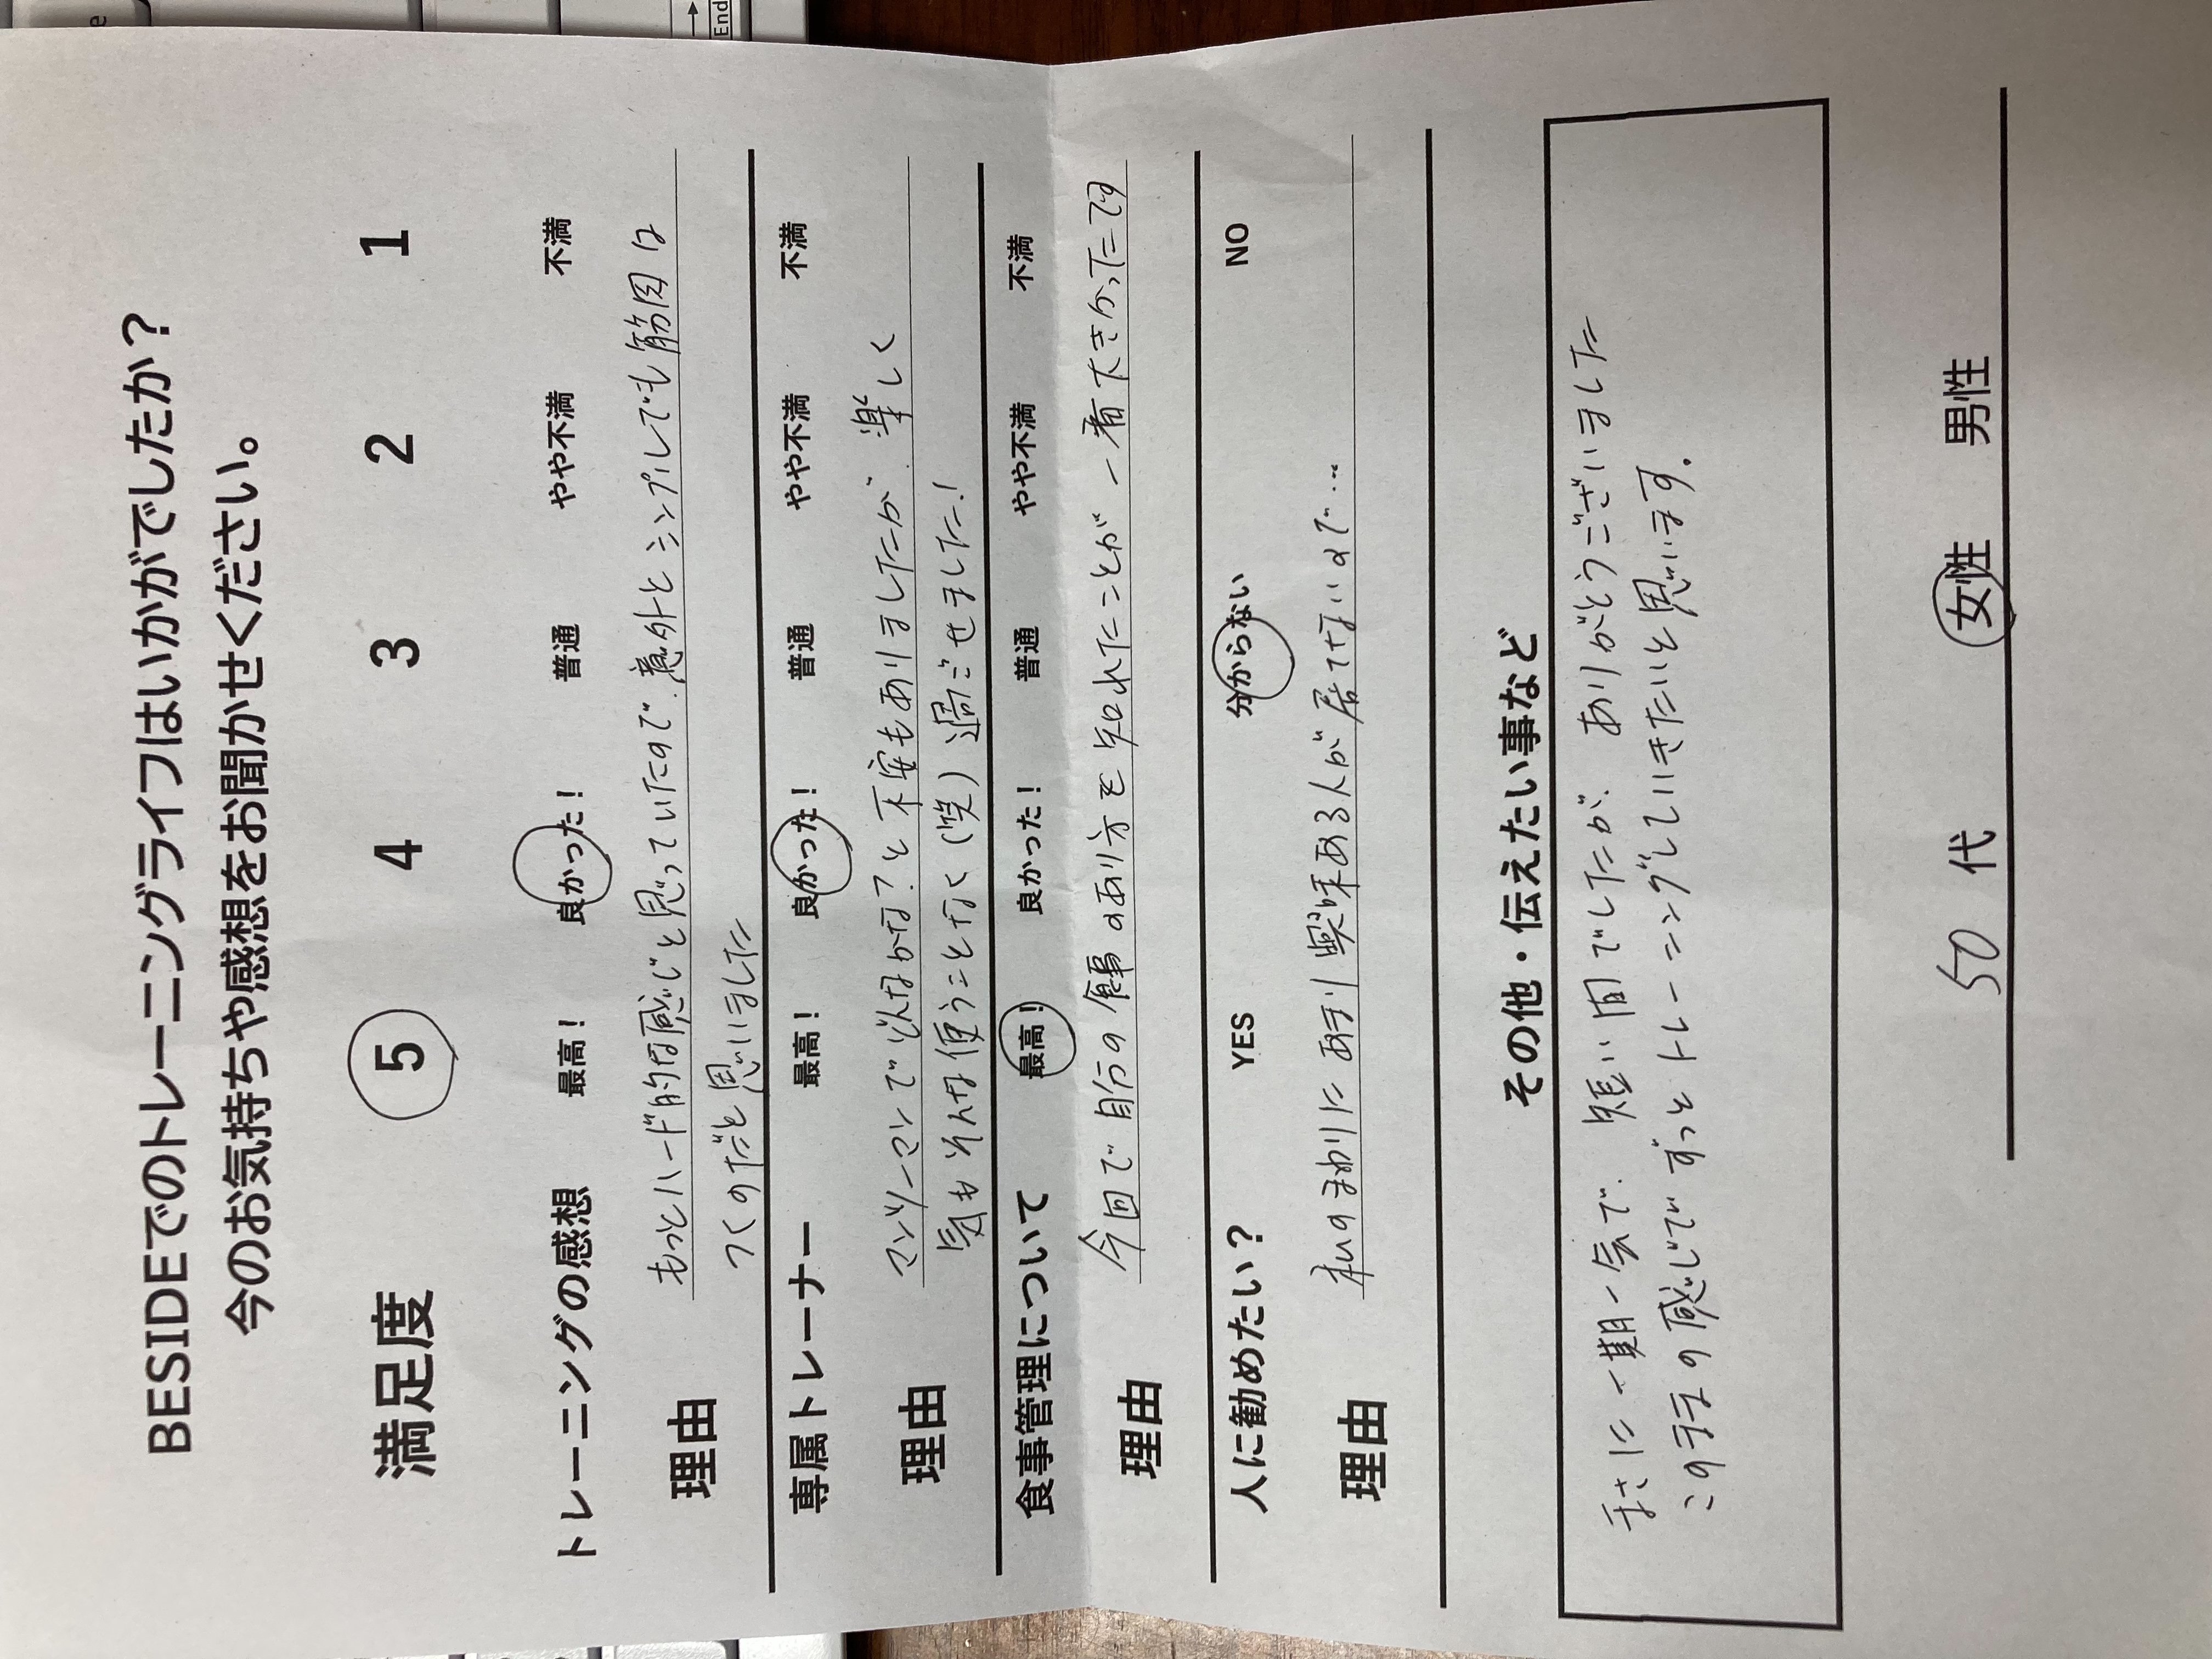 BESIDEでのトレーニングライフはいかがでしたか？
今のお気持ちや感想をお聞かせください。
満足度 5 4 3 2 1
トレーニングの感想 最高！ 良かった！ 普通 やや不満 不満
理由 もっとハード的な感じと思っていたので、意外とシンプルでも筋肉は
つくのだと思いました
専属トレーナー 最高！ 良かった！ 普通 やや不満 不満
理由 マンツーマンでどんなかな？と不安もありましたが、楽しく
気もそんな使うことなく（笑）過ごせました！
食事管理について 最高！ 良かった！ 普通 やや不満 不満
理由 今回で自分の食事のあり方を知れたことが一番大きかったです
人に勧めたい？ YES 分からない NO
理由 私のまわりにあまり興味ある人が居てないので…
その他・伝えたい事など
まさに一期一会で、短い間でしたが、ありがとうございました
このままの感じでずっとトレーニングしていきたいと思います.
50 代 女性 男性
End
e